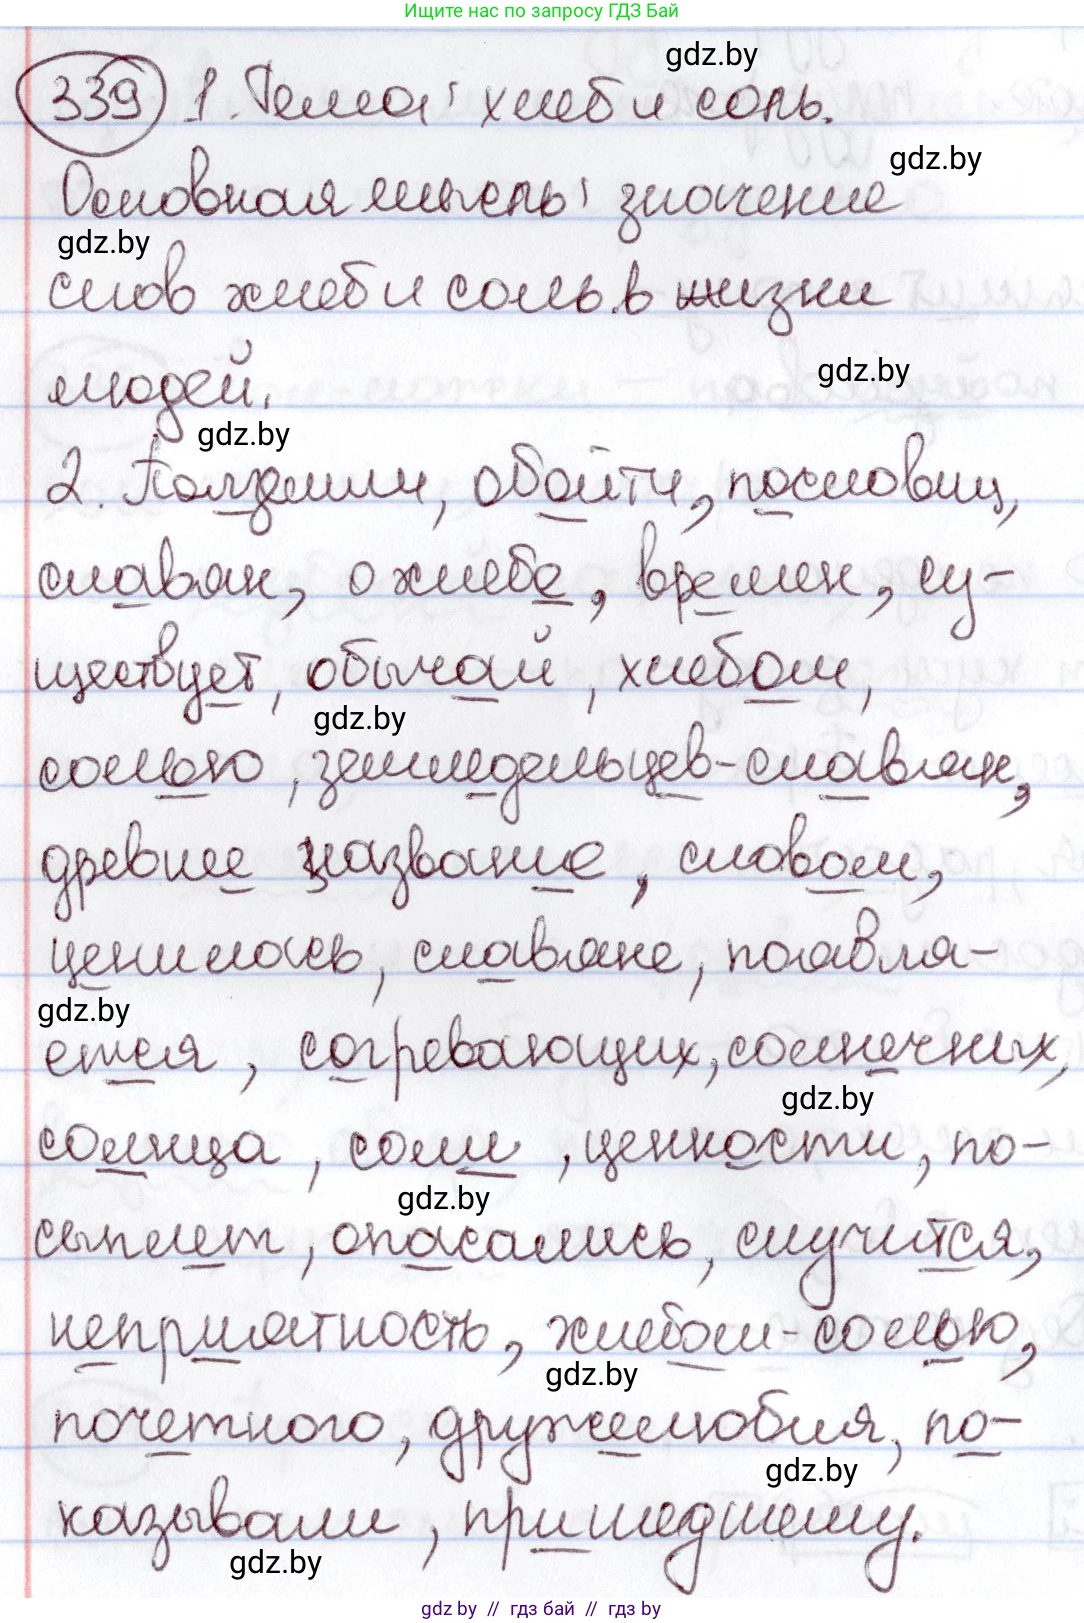 Ищите нас по запросу ГДЗ Бай
gdz.by
339 1. Тема: хлеб и соль.
gdz.by
Основная мысль: значение
gdz.by
слов хлеб и соль в жизни
gdz.by
людей.
gdz.by
2. обойти, пословиц,
славян, о хлебе, времен, су-
ществует, обычай, хлебом,
gdz.by
солью, земледельцев-славян,
древнее название, словом,
ценилась, славяне, появля-
gdz.by
ется, согревающих, солнечных,
gdz.by
солнца, соли, ценности, по-
gdz.by
сыплет, опасались, случится,
неприятность, хлебом-солью,
gdz.by
почетного, дружелюбия, по-
gdz.by
казывали, пришедшему.
gdz.by
gdz.by // гдз бай // gdz.by